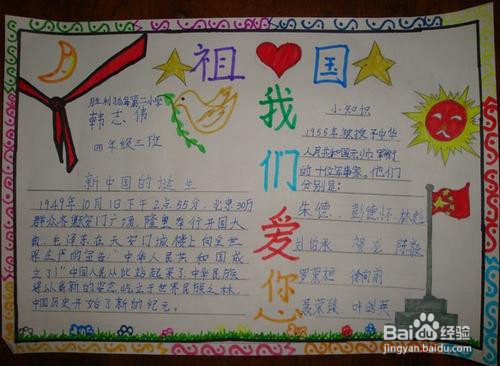 祖国
我们爱你
胜利
第二小学
韩志伟
四年级三班
新中国的诞生
1949年10月1日下午2点55分,北京30万
群众齐聚天安门广场,隆重举行开国大
典,毛泽东在天安门城楼上向全世
界庄严的宣告"中华人民共和国成
立了!"中国人民从此站起来了,中华民族
将以崭新的姿态屹立于世界民族之林,
中国历史开始了新的纪元。
小知识
1955年被授予中华
人民共和国元帅军衔
的十位军事家。他们
分别是:
朱德、彭德怀、林彪
刘伯承 贺龙 陈毅
罗荣桓 徐向前
聂荣臻 叶剑英
Baidu经验
jingyan.baidu.com